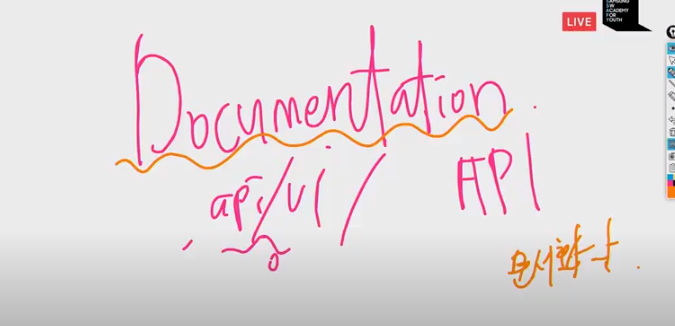 LIVE
SAMSUNG
SW
ACADEMY
FOR
YOUTH
Documentation.
api/ui/ API